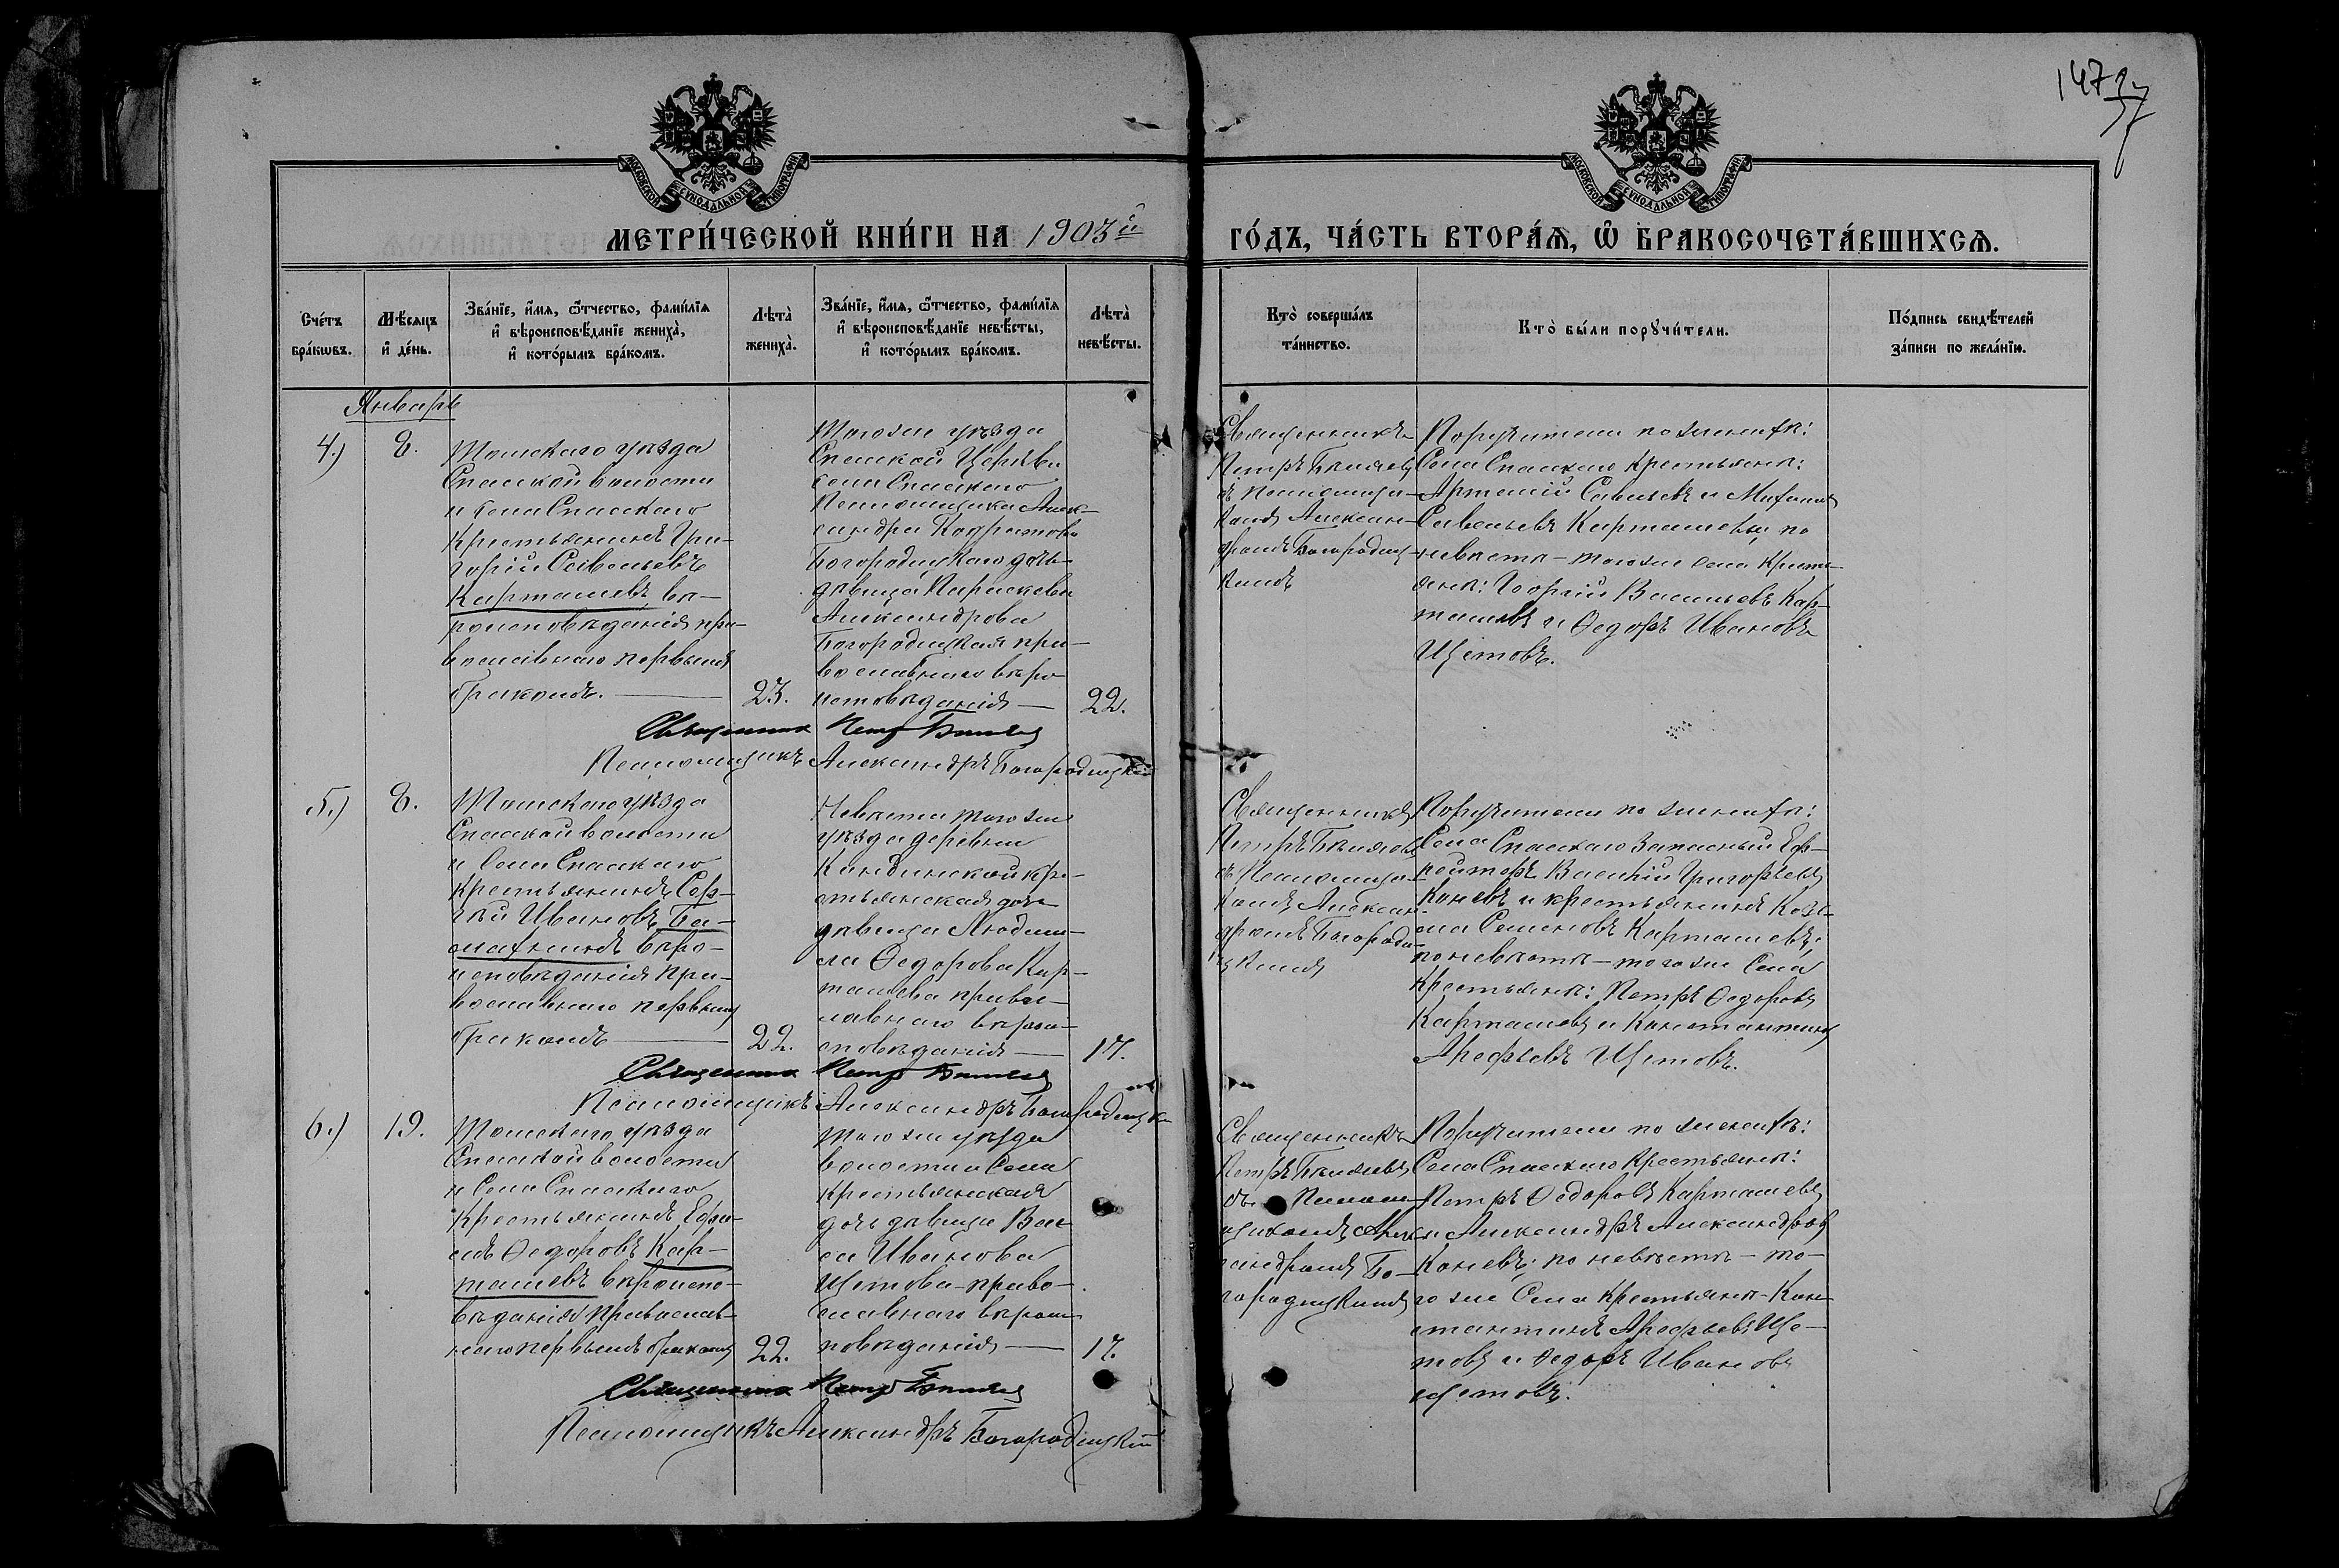 147
МОСКОВСКОЙ СѴНОДАЛЬНОЙ ТИПОГРАФІИ
МОСКОВСКОЙ СѴНОДАЛЬНОЙ ТИПОГРАФІИ
МЕТРИ́ЧЕСКОЙ КНИ́ГИ НА 1903й
ГО́ДЪ, ЧА́СТЬ ВТОРА́Ѧ, Ѡ҆ БРАКОСОЧЕТА́ВШИХСѦ.
Сче́тъ бра́кѡвъ.
Мѣ́сѧцъ и҆ де́нь.
Зва́нїе, и҆́мѧ, ѻ҆́тчество, фами́лїѧ
и҆ вѣроисповѣ́данїе жениха̀,
и҆ кото́рымъ бра́комъ.
Лѣта̀ жениха̀.
Зва́нїе, и҆́мѧ, ѻ҆́тчество, фами́лїѧ
и҆ вѣроисповѣ́данїе невѣ́сты,
и҆ кото́рымъ бра́комъ.
Лѣта̀ невѣ́сты.
Кто̀ соверша́лъ та́инство.
Кто̀ бы́ли порꙋчи́тели.
По́дпись свидѣ́телей за́писи по жела́нїю.
Январь
4.)
8.
Томскаго уѣзда
Спасской волости
и села Спасскаго
крестьянинъ Гри-
горій Савельевъ
Карташевъ вѣ-
роисповѣданія пра-
вославнаго первымъ
бракомъ.
23.
Того же уѣзда
Спасской Церкви
села Спасскаго
Псаломщика Алек-
сандра
Богородицкаго дочь
дѣвица Параскева
Александрова
Богородицкая пра-
вославнаго вѣро
исповѣданія
22.
Священникъ
Петръ Бѣляевъ
съ псаломщи-
комъ Алексан-
дромъ Богородиц-
кимъ
Поручители по женихѣ:
Села Спасскаго крестьяне:
Артемій Савельевъ и Михаилъ
Савельевъ Карташевы; по
невѣстѣ – того же села крестья-
яне: Георгій Васильевъ Кар-
ташевъ и Ѳедоръ Ивановъ
Щетовъ.
Священникъ Петр Бѣляев
Псаломщикъ Александръ Богородицкій
5.)
8.
Томскаго уѣзда
Спасской волости
и села Спасскаго
крестьянинъ Сер-
гѣй Ивановъ Ба-
вѣро-
исповѣданія пра-
вославнаго первымъ
бракомъ
22.
Невѣста того же
уѣзда деревни
Кандинской кре-
стьянская дочь
дѣвица Людми-
ла Ѳедорова Кар-
ташева право-
славнаго вѣрои-
сповѣданія
17.
Священникъ
Петръ Бѣляевъ
съ Псаломщи-
комъ Алексан-
дромъ Богороди-
цкимъ
Поручители по женихѣ:
Села Спасскаго Запасный Еф-
рейторъ Василій Григорьевъ
Коневъ и крестьянинъ Козь-
ма Семеновъ Карташевъ;
по невѣстѣ – того же Села
крестьяне: Петръ Ѳедоровъ
Карташевъ и Константинъ
Арефьевъ Щетовъ.
Священникъ Петр Бѣляев
Псаломщикъ Александръ Богородицкій
6.)
19.
Томскаго уѣзда
Спасской волости
и Села Спасскаго
крестьянинъ Ефи-
мъ Ѳедоровъ Кар-
ташевъ вѣроиспо-
вѣданія православ-
наго первымъ бракомъ
22.
Того же уѣзда
волости и Села
крестьянская
дочь дѣвица Вас-
са Иванова
Щетова право-
славнаго вѣроис-
повѣданія
17.
Священникъ
Петръ Бѣляевъ
съ Псалом-
щикомъ Алек-
сандромъ Бо-
городицкимъ
Поручители по женихѣ:
Села Спасскаго крестьяне:
Петръ Ѳедоровъ Карташевъ
и Александръ Александровъ
Коневъ; по невѣстѣ – то-
го же Села крестьяне – Кон-
стантинъ Арефьевъ Ще-
товъ и Ѳедоръ Ивановъ
Щетовъ.
Священникъ Петр Бѣляев
Псаломщикъ Александръ Богородицкій